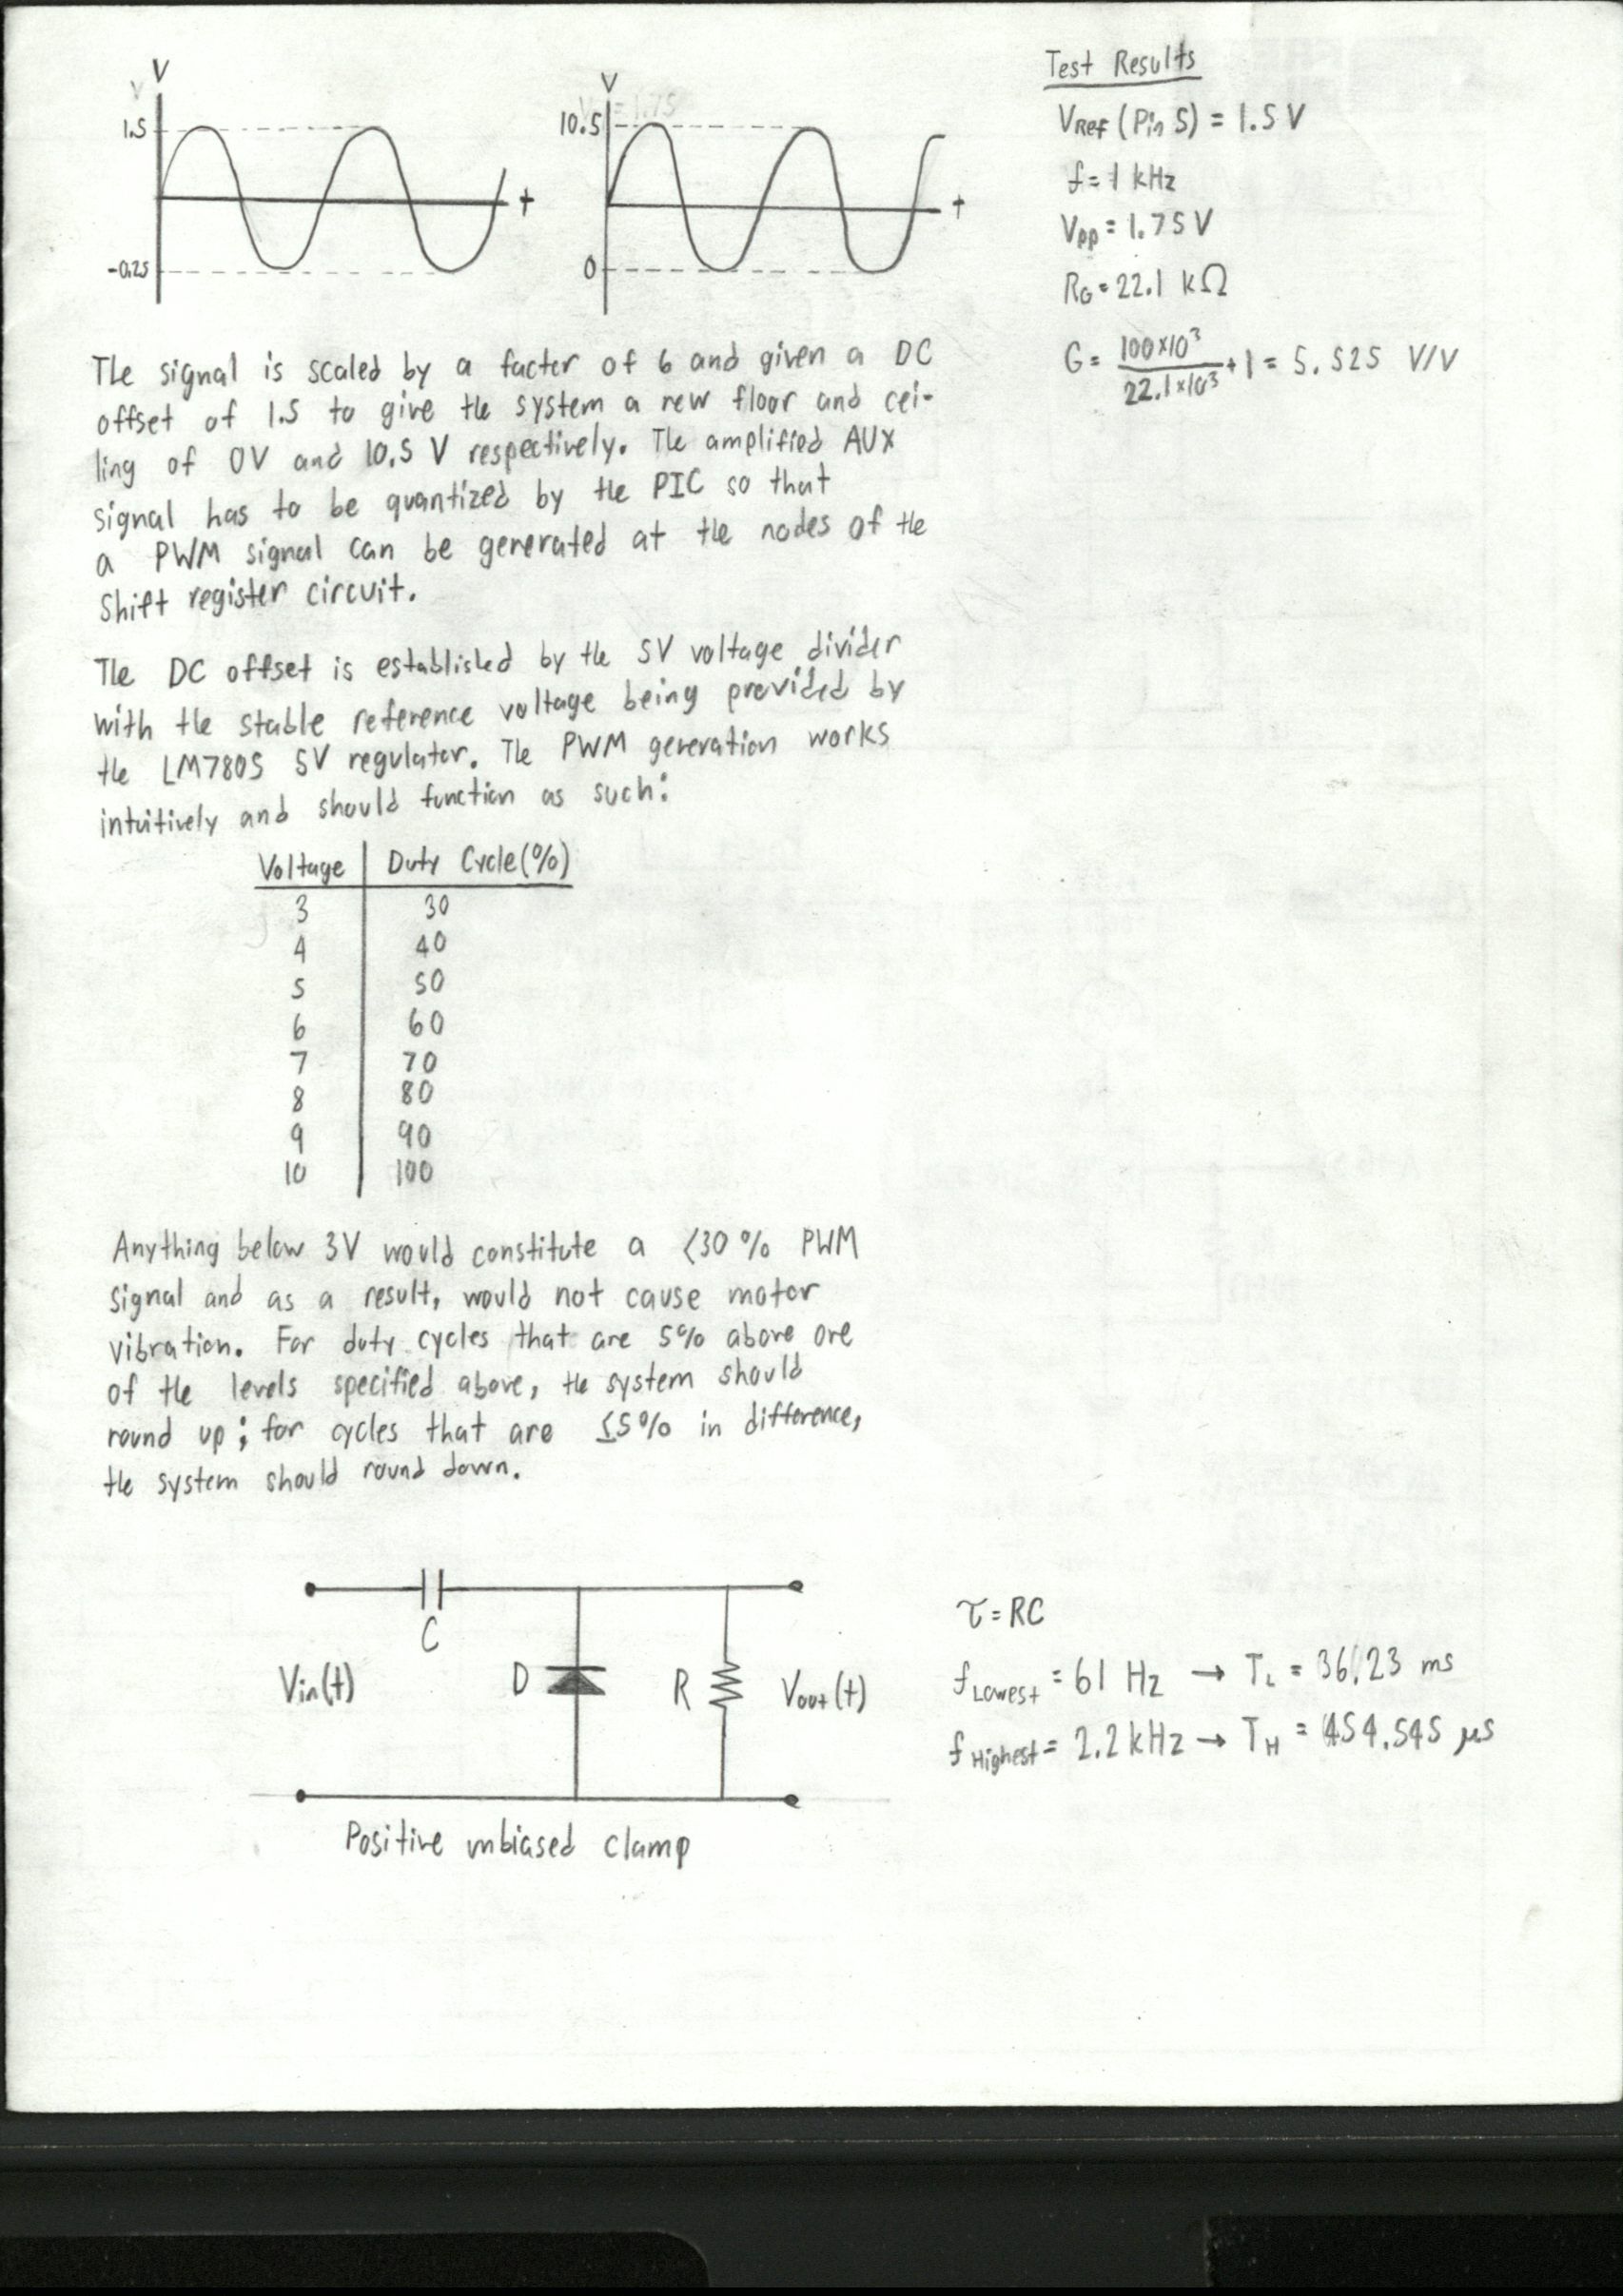 V
1.5
-0.25
t
V
10.5
0
t
The signal is scaled by a factor of 6 and given a DC
offset of 1.5 to give the system a new floor and cei-
ling of 0V and 10.5 V respectively. The amplified AUX
signal has to be quantized by the PIC so that
a PWM signal can be generated at the nodes of the
Shift register circuit.
The DC offset is established by the 5V voltage divider
with the stable reference voltage being provided by
the LM7805 5V regulator. The PWM generation works
intuitively and should function as such:
Voltage Duty Cycle(%)
3 30
4 40
5 50
6 60
7 70
8 80
9 90
10 100
Anything below 3V would constitute a <30% PWM
signal and as a result, would not cause motor
vibration. For duty cycles that are 5% above one
of the levels specified above, the system should
round up; for cycles that are ≤5% in difference,
the system should round down.
C
Vin(t)
D
R
Vout(t)
Positive unbiased clamp
Test Results
VRef (Pin 5) = 1.5 V
f = 1 kHz
Vpp = 1.75 V
RG = 22.1 kΩ
G = 100×10³/22.1×10³ + 1 = 5.525 V/V
τ = RC
fLowest = 61 Hz → TL = 36.23 ms
fHighest = 2.2 kHz → TH = 454.545 μs